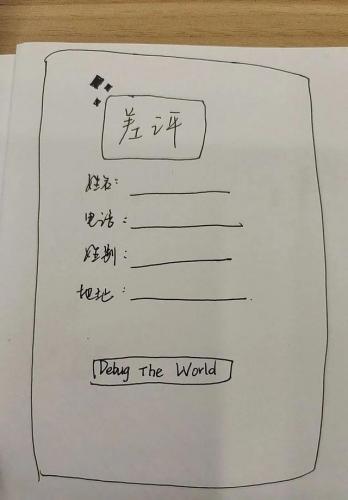 差评
姓名：
电话：
性别：
地址：
Debug The World